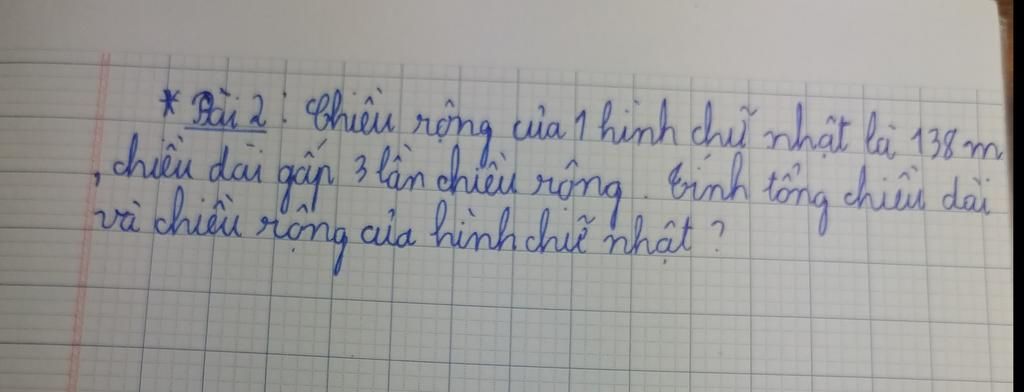 * Bài 2 : Chiều rộng của 1 hình chữ nhật là 138 m
, chiều dài gấp 3 lần chiều rộng. Tính tổng chiều dài
và chiều rộng của hình chữ nhật ?